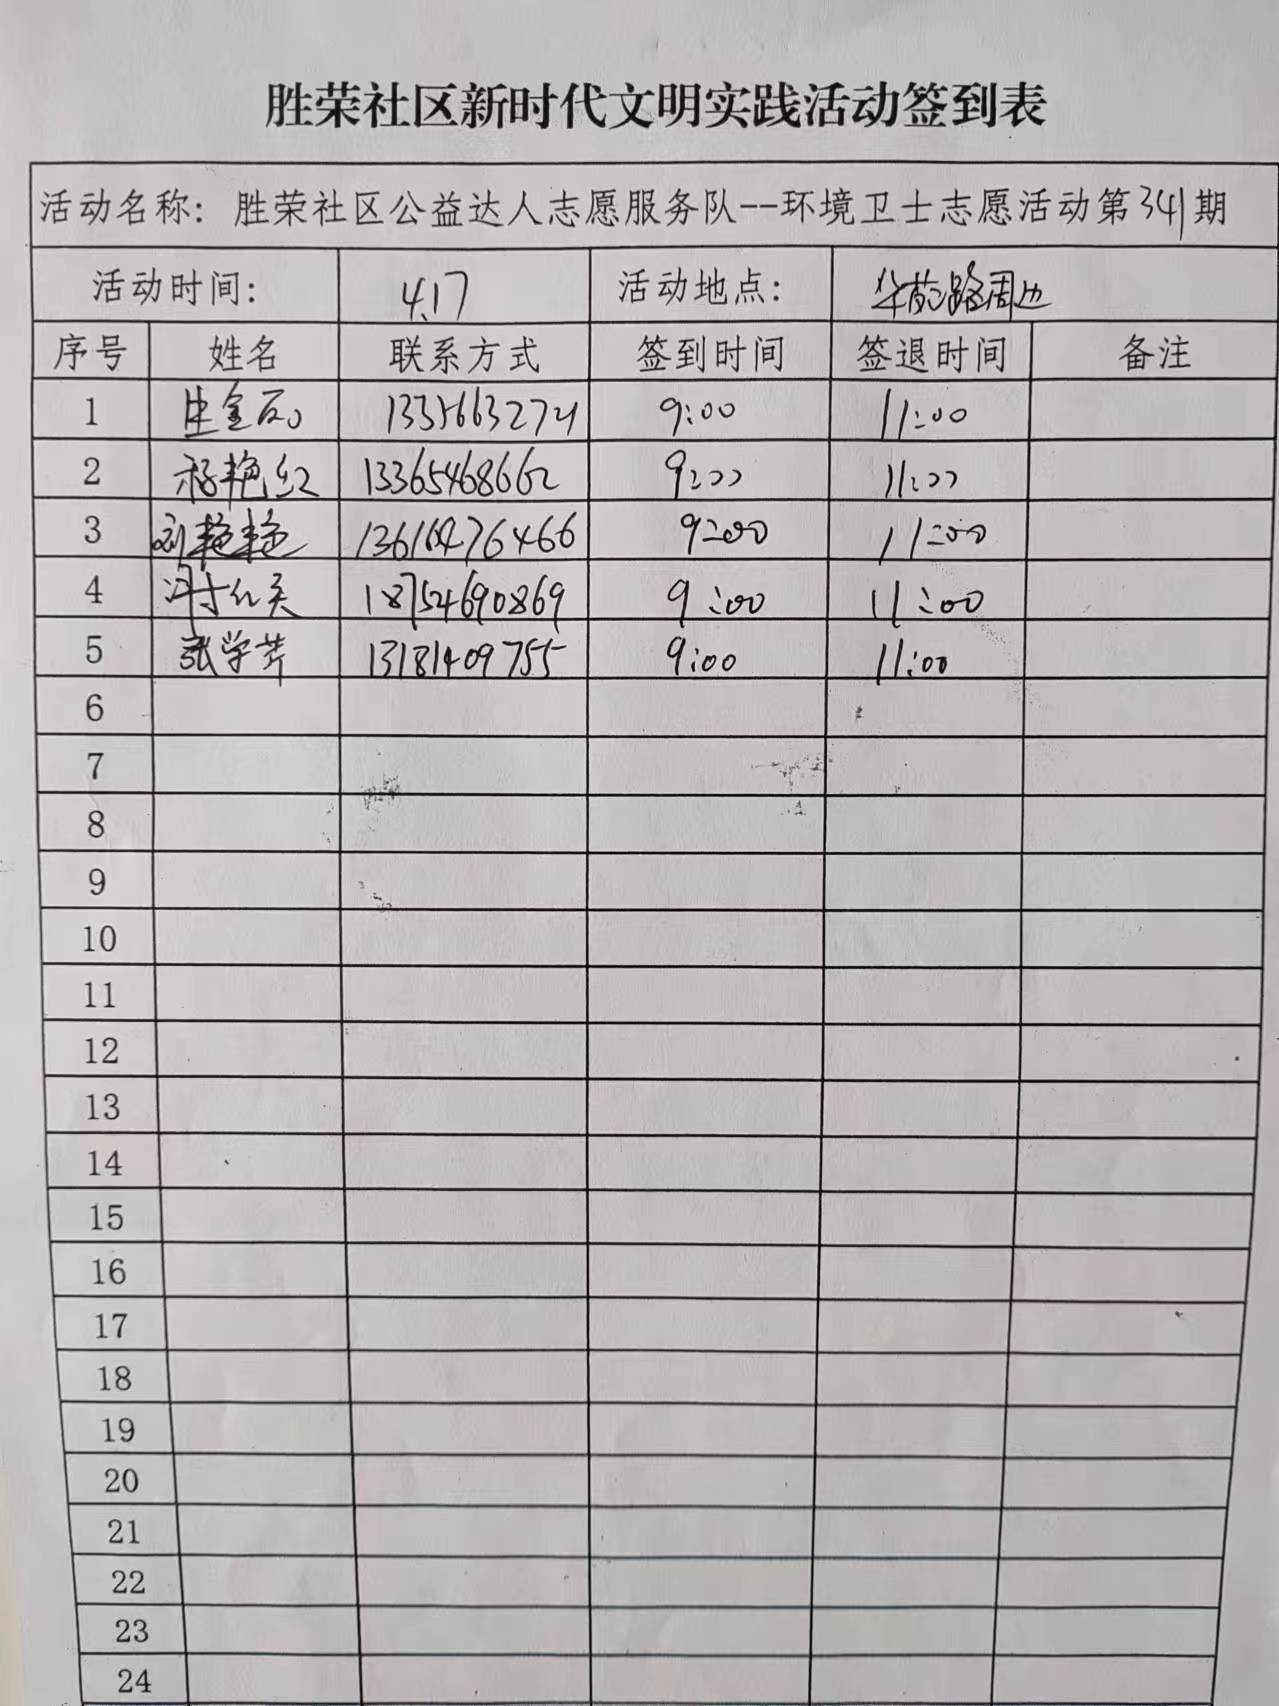 胜荣社区新时代文明实践活动签到表
活动名称：胜荣社区公益达人志愿服务队--环境卫士志愿活动第341期
活动时间： 4.17 活动地点： 华苑路周边
序号 姓名 联系方式 签到时间 签退时间 备注
1 9:00 11:00
2 艳红 13365468662 9:00 11:00
3 刘艳艳 13616476466 9:00 11:00
4 18754690869 9:00 11:00
5 张学芹 13181409755 9:00 11:00
6
7
8
9
10
11
12
13
14
15
16
17
18
19
20
21
22
23
24